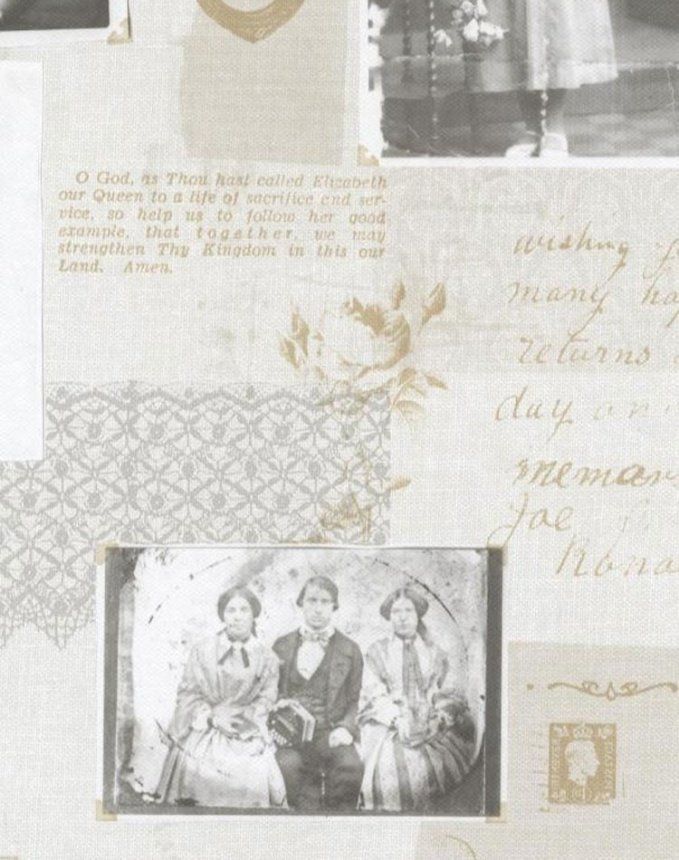 O God, as Thou hast called Elizabeth
our Queen to a life of sacrifice and ser-
vice, so help us to follow her good
example, that together, we may
strengthen Thy Kingdom in this our
Land. Amen.
wishing
many
returns
day
Joe